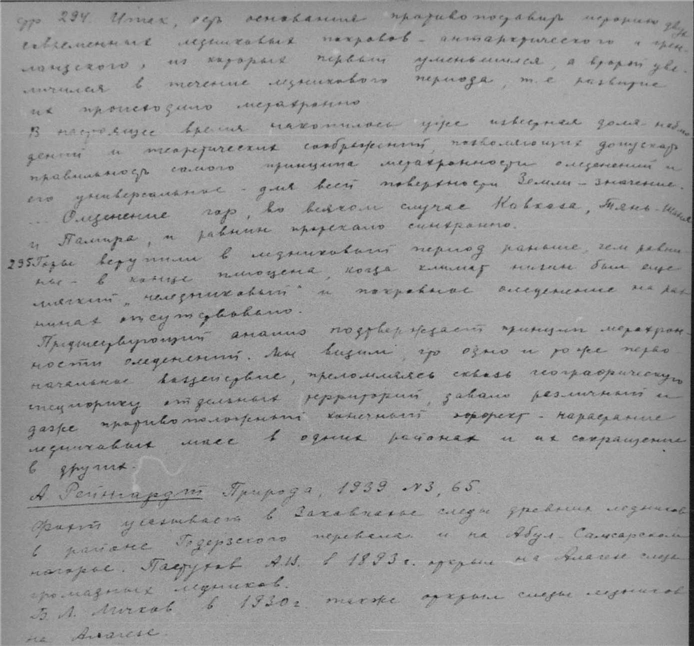 стр 294. Итак, есть основания противопоставить историю двух
современных ледниковых покровов - антарктического и грен-
ландского, из которых первый уменьшился, а второй уве-
личился в течение ледникового периода, т.е. развитие
их происходило метахронно
В настоящее время накопилось уже известная доля наблю-
дений и теоретических соображений, позволяющих допускать
правильность самого принципа метахронности оледенений и
его универсальное - для всей поверхности Земли - значение.
... Оледенение гор, во всяком случае Кавказа, Тянь-Шаня
и Памира, и равнин протекало синхронно.
295. Горы вступили в ледниковый период раньше, чем равни-
ны - в конце плиоцена, когда климат низин был еще
мягкий "неледниковый" и покровное оледенение на рав-
нинах отсутствовало.
Предшествующий анализ подтверждает принцип метахрон-
ности оледенений. Мы видим, что одно и то же перво-
начальное воздействие, преломляясь сквозь географическую
специфику отдельных территорий, давало различный и
даже противоположный конечный эффект - нарастание
ледниковых масс в одних районах и их сокращение
в других.
А. Рейнгардт Природа, 1939 №3, 65.
указывает в Закавказье следы древних ледников
в районе Годерзского перевала и на Абул-Самсарском
нагорье. Пастухов А.В. в 1893 г. открыл на Алагезе следы
громадных ледников.
В. Л. Личков в 1930г. также открыл следы ледников
на Алагезе.